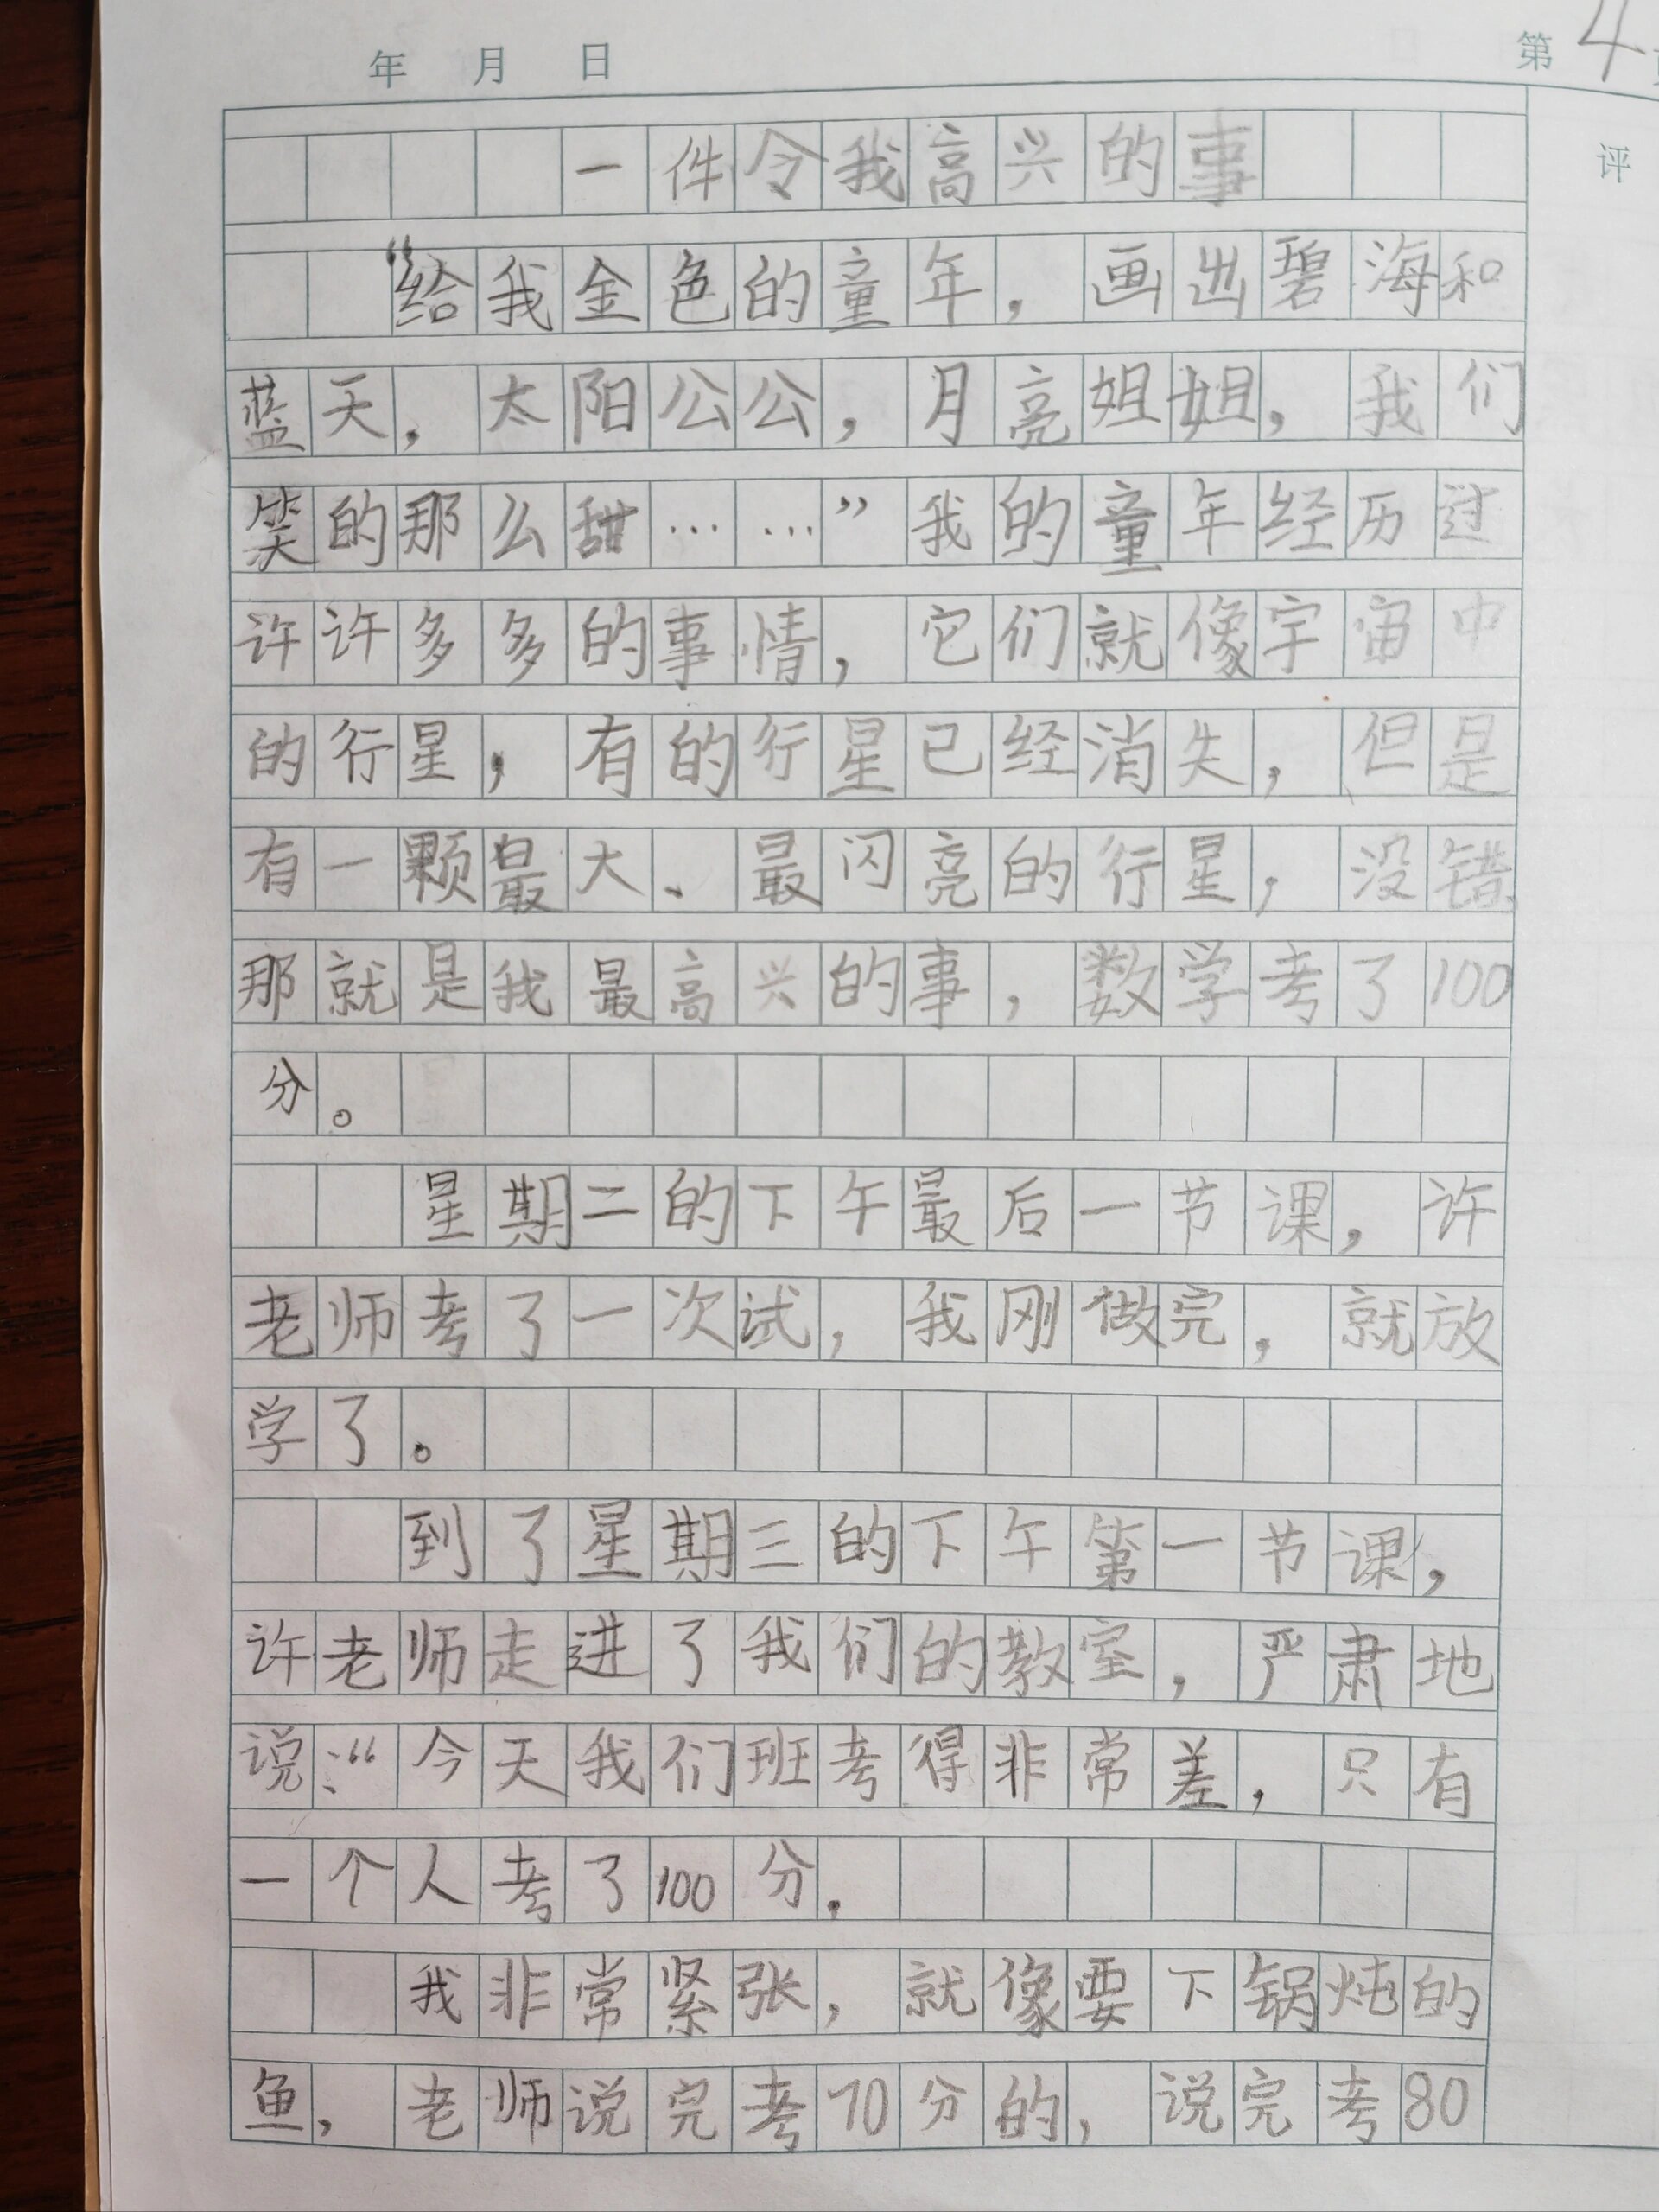 年 月 日 第4
评
一件令我高兴的事
“给我金色的童年，画出碧海和
蓝天，太阳公公，月亮姐姐，我们
笑的那么甜……”我的童年经历过
许许多多的事情，它们就像宇宙中
的行星，有的行星已经消失，但是
有一颗最大、最闪亮的行星，没错，
那就是我最高兴的事，数学考了100
分。
星期二的下午最后一节课，许
老师考了一次试，我刚做完，就放
学了。
到了星期三的下午第一节课，
许老师走进了我们的教室，严肃地
说：“今天我们班考得非常差，只有
一个人考了100分.
我非常紧张，就像要下锅炖的
鱼，老师说完考70分的，说完考80